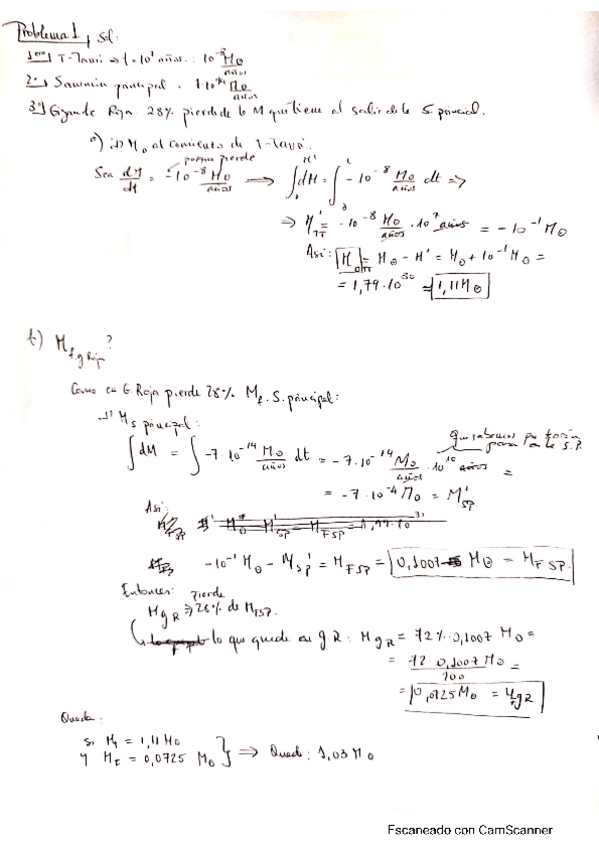 Problema 1, Sol:
1ero) T-Tauri => t = 10⁷ años : 10⁻⁸ M⊙/años
2º) Secuencia principal . 7·10⁻¹⁴ M⊙/años
3º) Gigante Roja 28% pierde de la M que tiene al salir de la S. principal.
a) ¿? M⊙ al comienzo de T-Tauri.
porque pierde
Sea dM/dt = -10⁻⁸ M⊙/años → ∫dM = ∫ -10⁻⁸ M⊙/años dt =>
=> M'TT = -10⁻⁸ M⊙/años · 10⁷ años = -10⁻¹ M⊙
Así: M = M⊙ - M' = M⊙ + 10⁻¹ M⊙ =
= 1,79·10³⁰ = 1,11 M⊙
b) M f g Roja ?
Como en G. Roja pierde 28% Mf. S. principal:
M s principal:
que sabemos por teoría
para la S.P.
∫dM = ∫ -7·10⁻¹⁴ M⊙/años dt = -7·10⁻¹⁴ M⊙/años · 10¹⁰ años =
= -7·10⁻⁴ M⊙ = M'SP
Así:
-10⁻¹ M⊙ - M'SP = MFSP = 0,1007 M⊙ = MFSP.
Entonces: pierde
MgR => 28% de MFSP.
lo que quede en gR: MgR = 72% · 0,1007 M⊙ =
= 72 · 0,1007 M⊙ / 100 =
= 0,0725 M⊙ = MgR
Queda:
si M = 1,11 M⊙
y MF = 0,0725 M⊙ } => Queda: 1,03 M⊙
Escaneado con CamScanner